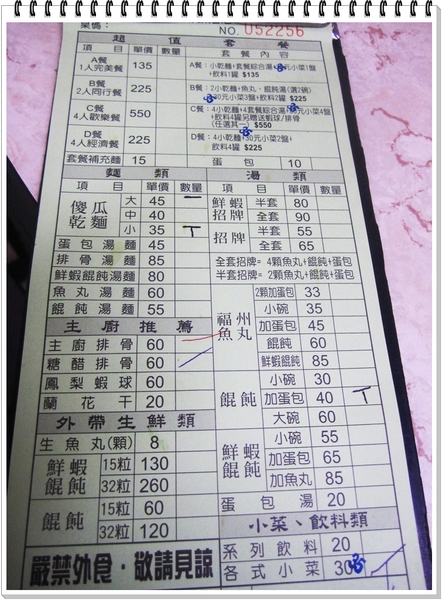 桌碼：
NO. 052256
超值套餐
項目 單價 數量 套餐內容
A餐 1人完美餐 135 A餐：小乾麵+套餐綜合湯+30元小菜1盤+飲料1罐 $135
B餐 2人同行餐 225 B餐：2小乾麵+魚丸、餛飩湯(選2碗)+30元小菜3盤+飲料2罐 $225
C餐 4人歡樂餐 550 C餐：4小乾麵+4套餐綜合湯+30元小菜4盤+飲料4罐另贈送蝦球/排骨(任選其一) $550
D餐 4人經濟餐 225 D餐：4小乾麵+30元小菜2盤+飲料4罐 $225
套餐補充麵 15 蛋包 10
麵類
項目 單價 數量
傻瓜乾麵 大 45 一
中 40
小 35 T
蛋包湯麵 45
排骨湯麵 85
鮮蝦餛飩湯麵 80
魚丸湯麵 60
餛飩湯麵 55
主廚推薦
主廚排骨 60
糖醋排骨 60
鳳梨蝦球 60
蘭花干 20
外帶生鮮類
生魚丸(顆) 8
鮮蝦餛飩 15粒 130
32粒 260
餛飩 15粒 60
32粒 120
嚴禁外食‧敬請見諒
湯類
項目 單價 數量
鮮蝦招牌 半套 80
全套 90
招牌 半套 55
全套 65
全套招牌= 4顆魚丸+餛飩+蛋包
半套招牌= 2顆魚丸+餛飩+蛋包
福州魚丸 2顆加蛋包 33
小碗 35
加蛋包 45
餛飩 60
鮮蝦餛飩 85
餛飩 小碗 30
加蛋包 40 T
大碗 60
鮮蝦餛飩 小碗 55
加蛋包 65
加魚丸 85
蛋包湯 20
小菜、飲料類
系列飲料 20
各式小菜 30